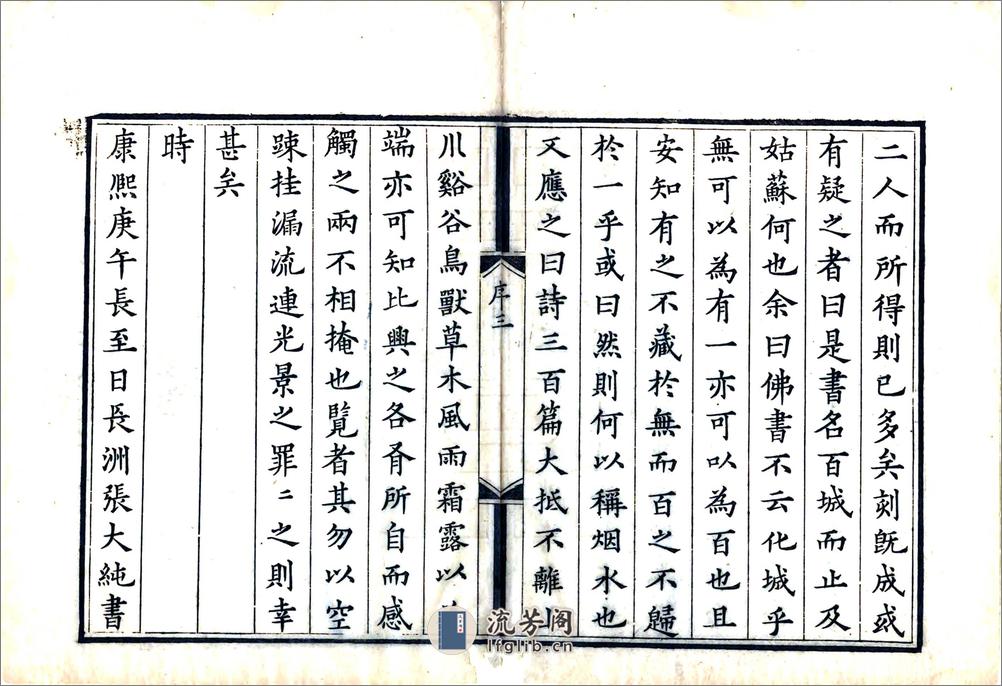 二人而所得則已多矣刻既成或
有疑之者曰是書名百城而止及
姑蘇何也余曰佛書不云化城乎
無可以為有一亦可以為百也且
安知有之不藏於無而百之不歸
於一乎或曰然則何以稱烟水也
又應之曰詩三百篇大抵不離
序三
川谿谷鳥獸草木風雨霜露以
端亦可知比興之各有所自而感
觸之兩不相掩也覧者其勿以空
疎挂漏流連光景之罪二之則幸
甚矣
時
康熙庚午長至日長洲張大純書
流芳阁
lfglib.cn